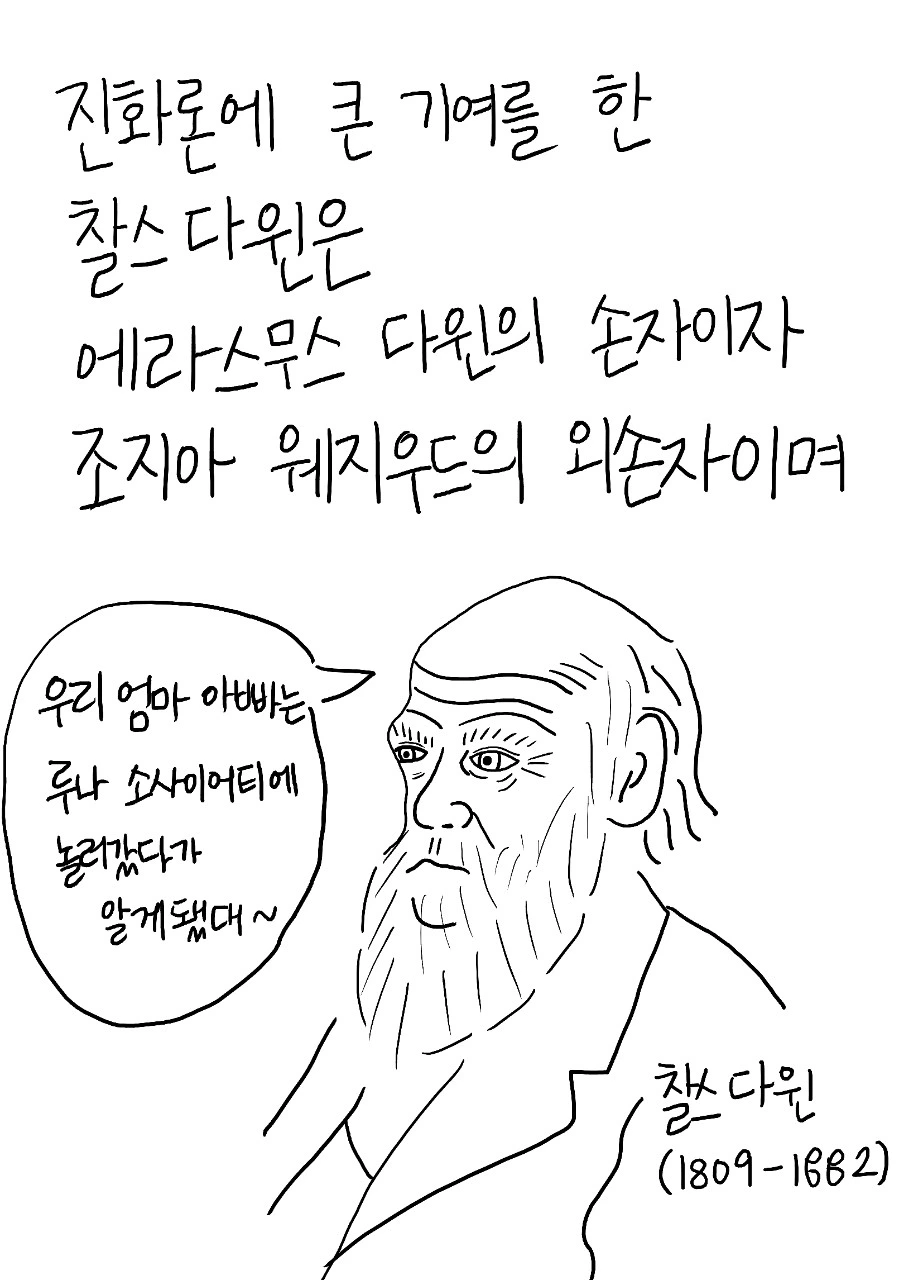 진화론에 큰 기여를 한
찰스 다윈은
에라스무스 다윈의 손자이자
조지아 웨지우드의 외손자이며
우리 엄마 아빠는
루나 소사이어티에
놀러갔다가
알게됐대~
찰스 다윈
(1809-1882)